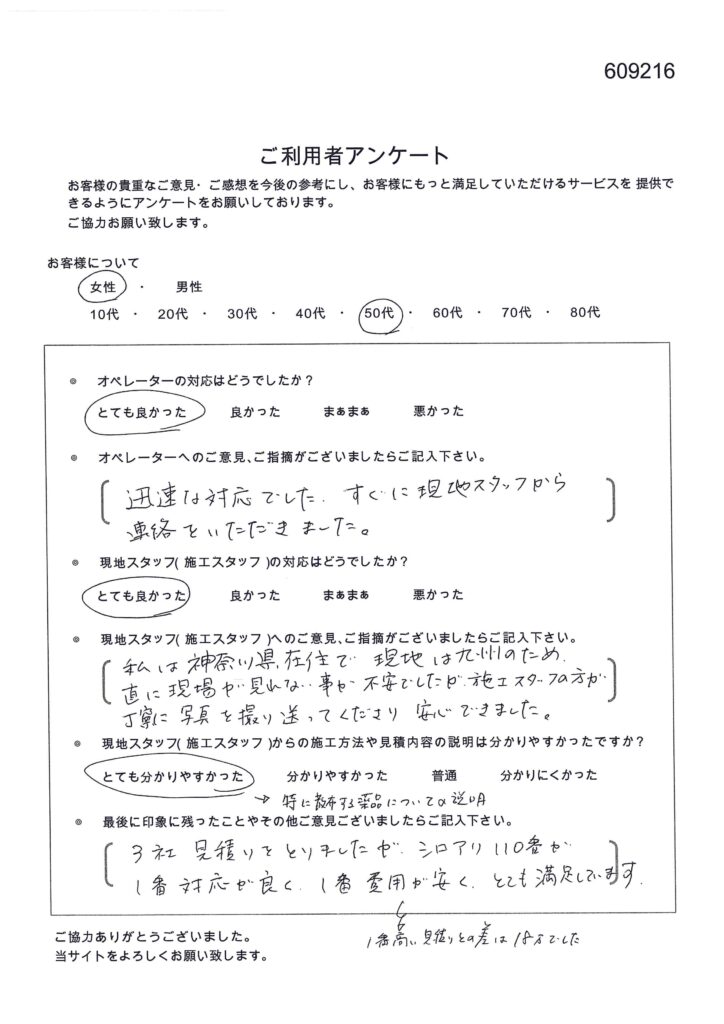 609216
ご利用者アンケート
お客様の貴重なご意見・ご感想を今後の参考にし、お客様にもっと満足していただけるサービスを 提供で
きるようにアンケートをお願いしております。
ご協力お願い致します。
お客様について
女性 ・ 男性
10代 ・ 20代 ・ 30代 ・ 40代 ・ 50代 ・ 60代 ・ 70代 ・ 80代
◎ オペレーターの対応はどうでしたか？
とても良かった 良かった まぁまぁ 悪かった
◎ オペレーターへのご意見、ご指摘がございましたらご記入下さい。
迅速な対応でした. すぐに現地スタッフから
連絡をいただきました。
◎ 現地スタッフ( 施工スタッフ )の対応はどうでしたか？
とても良かった 良かった まぁまぁ 悪かった
◎ 現地スタッフ( 施工スタッフ )へのご意見、ご指摘がございましたらご記入下さい。
私は神奈川県在住で 現地は九州のため.
直に現場が見れない事が不安でしたが.施工スタッフの方が
丁寧に写真を撮り送ってくださり 安心できました。
◎ 現地スタッフ( 施工スタッフ )からの施工方法や見積内容の説明は分かりやすかったですか？
とても分かりやすかった 分かりやすかった 普通 分かりにくかった
→ 特に散布する薬品についての説明
◎ 最後に印象に残ったことやその他ご意見ございましたらご記入下さい。
3社 見積りをとりましたが. シロアリ110番が
1番 対応が良く. 1番 費用が安く. とても満足しています.
1番高い見積りとの差は18万でした
ご協力ありがとうございました。
当サイトをよろしくお願い致します。